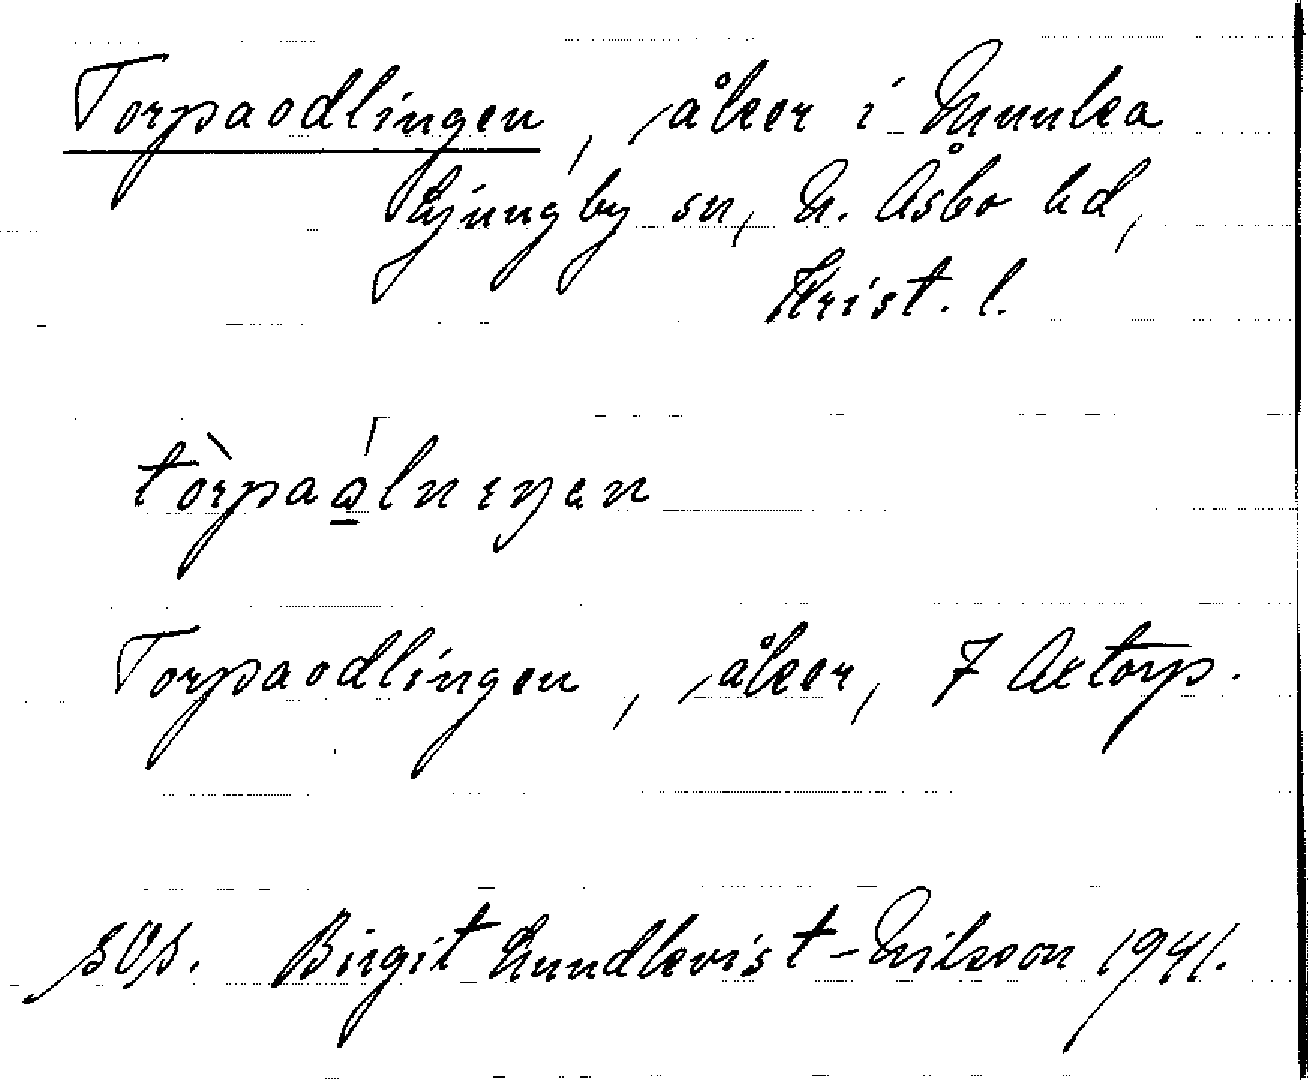 Torpaodlingen, åker i Munka
Ljungby sn, N. Åsbo hd,
Krist. l.
tòrpaálnıŋan
Torpaodlingen, åker, 7 Axtorp.
Birgit Lundkvist-Nilsson 1941.